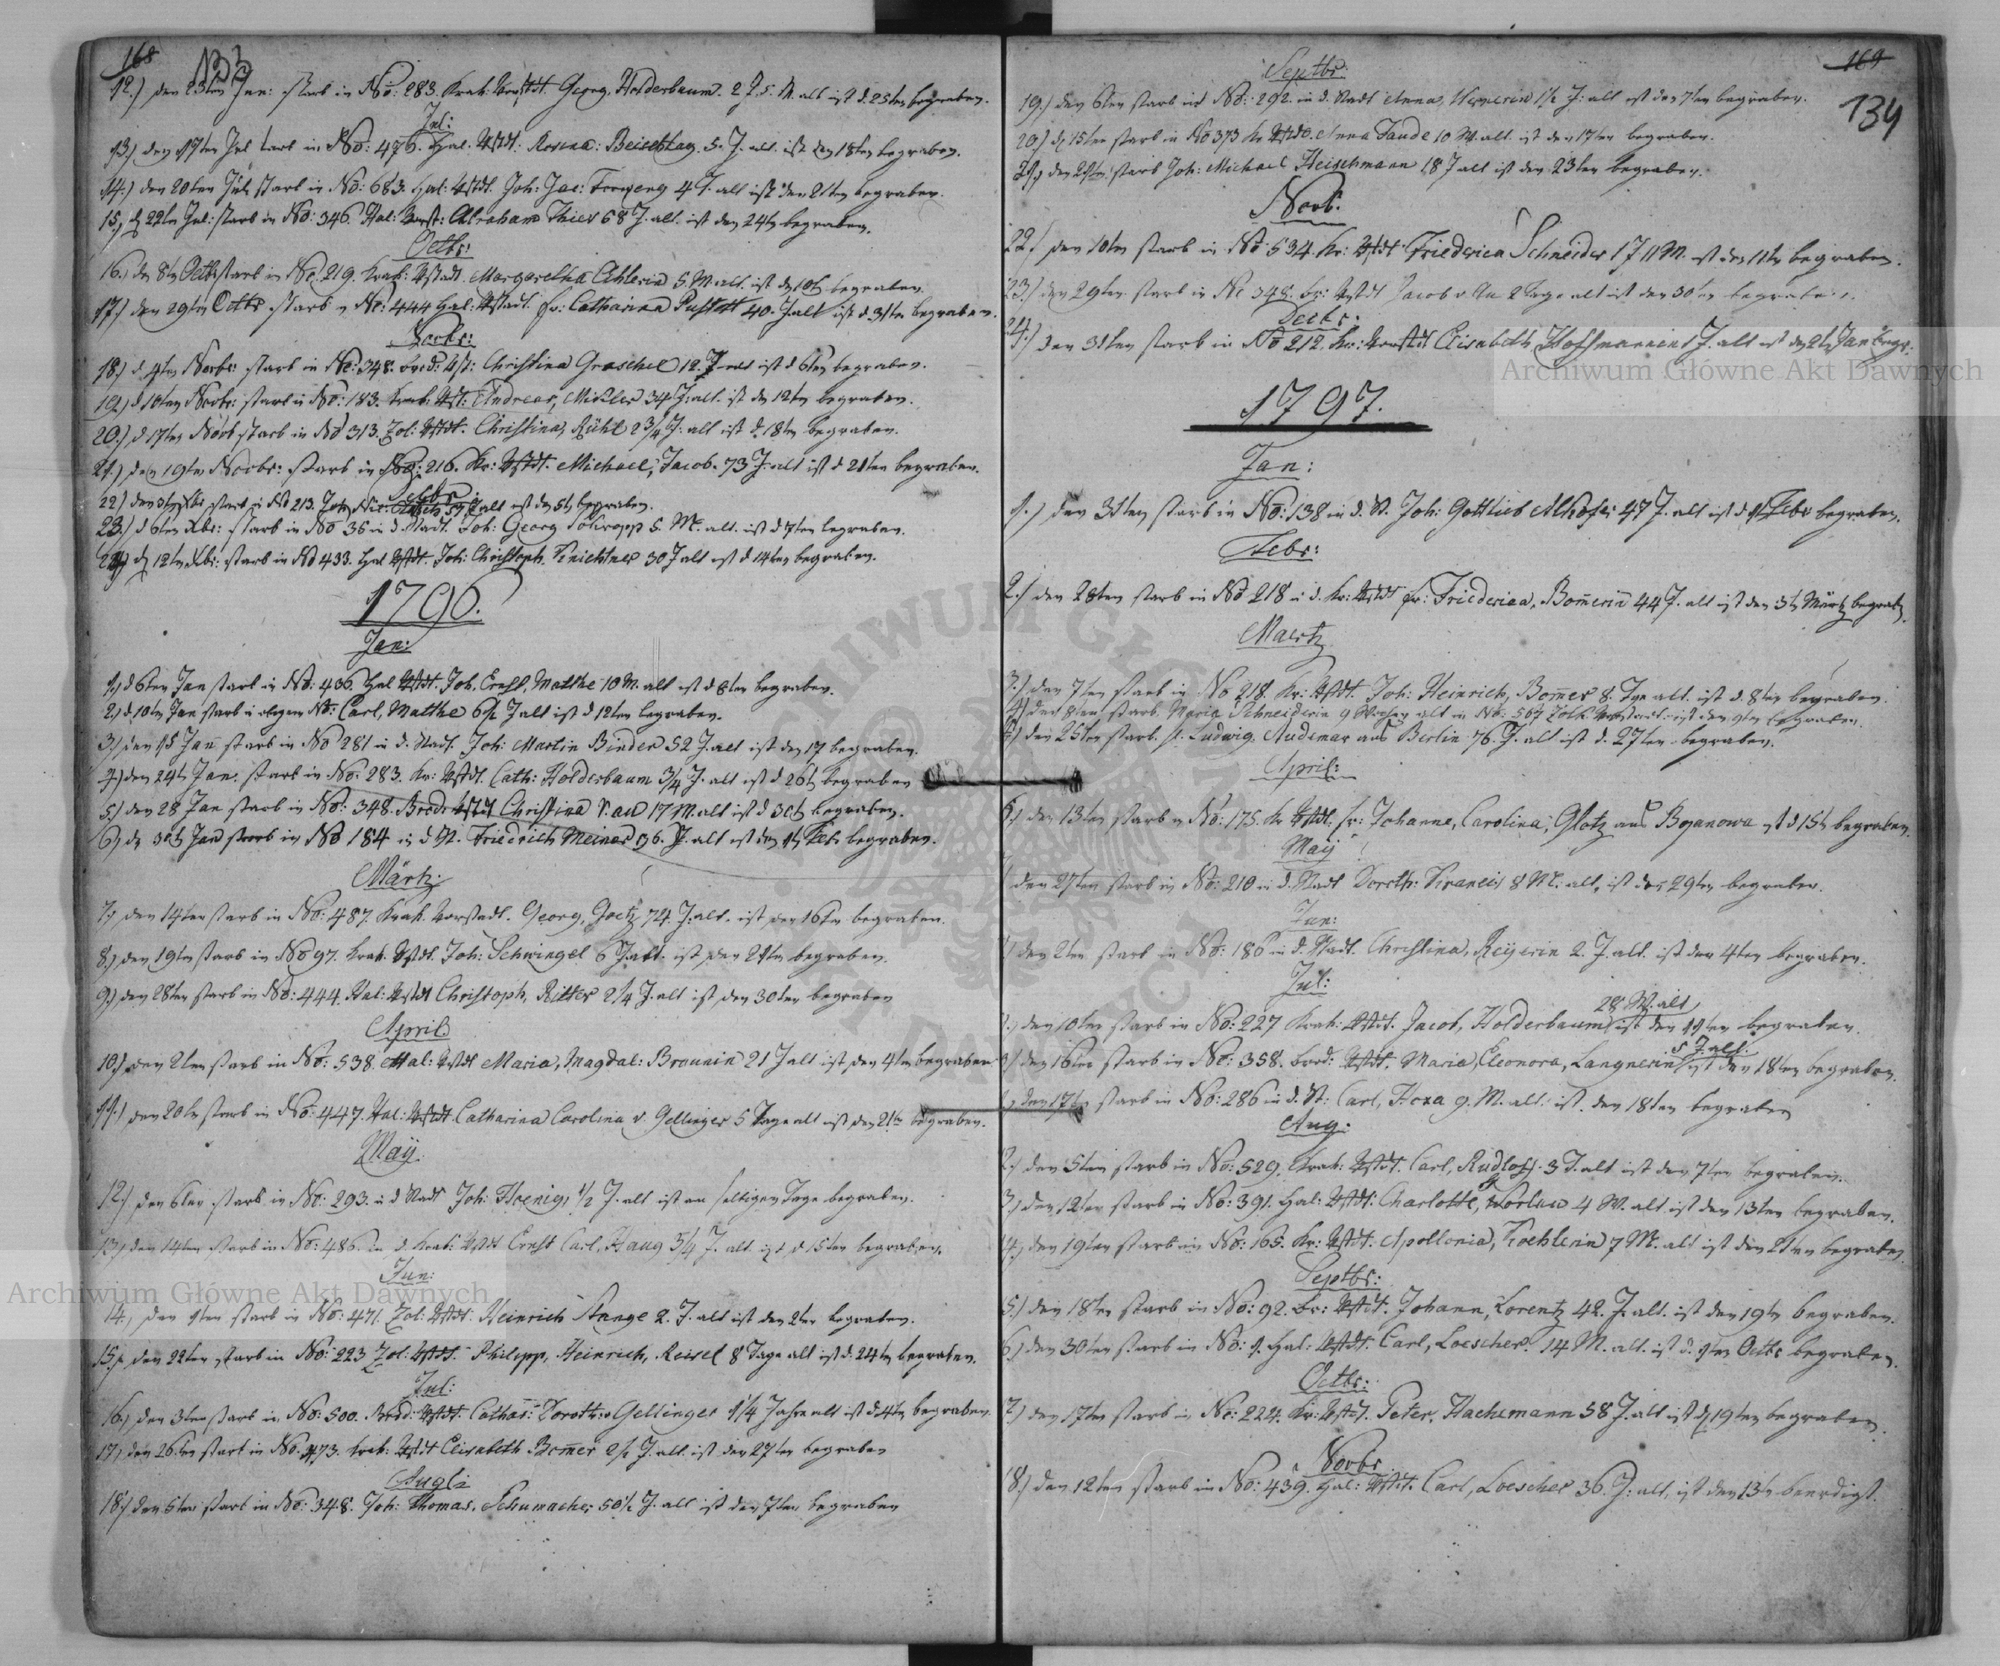 168
133
12.) den 23ten Jun: starb in No: 283. Krak: Vorstdt. Georg, Holderbaum. 2 J. 5. M. alt ist d. 25ten begraben.
Jul:
13.) den 17ten Jul starb in No: 476. Hal: Vstdt: Rosina: Beischlag. 5. J. alt. ist den 18ten begraben.
14.) den 20ten July starb in No: 683. Hal: Vstdt. Joh: Jac: 4 J. alt ist den 21ten begraben.
15.) d 22ten Jul: starb in No: 346. Hal: Vorst: Abraham Thier 68 J. alt. ist den 24ten begraben.
Octbr:
16.) den 8ten Octbr starb in No: 219. Krak: Vstadt. Margaretha 5. M. alt. ist d 10t begraben.
17.) den 29ten Octbr starb in No: 444 Hal: Vstadt. fr: Catharina 40. J alt ist d. 31ten begraben.
Novbr:
18.) d 4ten Novbr: starb in No: 348. Brod: Vst: Christina Groschel 12. J. alt ist d 6ten begraben.
19.) d 10ten Novbr: starb in No: 183. Krak: Vst: Andreas, Mikler 34 J: alt. ist den 12ten begraben.
20.) d 17ten Novb starb in No 313. Zol: Vstdt. Christina, Rühl 2 3/4 J: alt ist d. 18ten begraben.
21.) den 19ten Novbr: starb in No: 216. Kr: Vstdt. Michael, Jacob. 73 J. alt ist d 21ten begraben.
Xbr
22.) den 3ten Xbr starb in No 213. Joh: alt ist den 5t begraben.
23.) d 6ten Xbr: starb in No 36 in d. Stadt. Joh: Georg 5. M. alt. ist d 7ten begraben.
24.) d 12ten Xbr: starb in No 433. Hal Vstdt. Joh: Christoph. 30 J alt ist d 14ten begraben.
1796.
Jan:
1.) d 6ten Jan starb in No: 436. Hal Vstdt. Joh. Ernst, Matthe 10 M. alt ist d 8ten begraben.
2.) d 10ten Jan starb in obigem No: Carl, Matthe 6 1/2 J alt ist d 12ten begraben.
3.) den 15 Jan starb in No 281 in d. Stadt. Joh: Martin Binder 52 J. alt ist den 17 begraben.
4.) den 24ten Jan. starb in No: 283. Kr: Vstdt. Cath: Holderbaum 3/4 J. alt ist d 26t begraben
5.) den 28 Jan starb in No: 348. Brod: Vstdt Christina Rau 17 M. alt ist d 30t begraben.
6.) den 30t Jan starb in No 184 in d St. Friedrich Meiner 36. J. alt ist den 1t Febr begraben.
Märtz:
7.) den 14ten starb in No: 487. Krak. Vorstadt. Georg, Goetz 74. J: alt. ist den 16ten begraben.
8.) den 19ten starb in No 97. Krak. Vstdt. Joh: Schwingel 6 J: alt. ist den 21ten begraben.
9.) den 28ten starb in No: 444. Hal: Vstdt Christoph, Ritter 2 1/4 J. alt ist den 30ten begraben
April
10.) den 2ten starb in No: 538. Hal: Vstdt Maria, Magdal: Braunin 21 J alt ist den 4ten begraben.
11.) den 20ten starb in No: 447. Hal: Vstdt Catharina Carolina v. Gellinger 5 Tage alt ist den 21t begraben.
May.
12.) den 6ten starb in No: 293. in d Stadt Joh: Hoenig, 1/2 J. alt ist am selbigen Tage begraben.
13.) den 14ten starb in No: 486. in d. Krak: Vstdt Ernst Carl, Haug 5/4 J. alt ist d 15ten begraben.
Jun:
14.) den 1ten starb in No: 471. Zol: Vstdt: Heinrich Stange 2. J. alt ist den 2ten begraben.
15.) den 22ten starb in No: 223 Zol: Vstdt. Philipp, Heinrich, Reisel 8 Tage alt ist d. 24ten begraben.
Jul:
16.) den 3ten starb in No: 500. Brod: Vstdt. Cathar: Doroth: Gellinger 1 1/4 Jahr alt ist d 4ten begraben.
17.) den 26ten starb in No. 473. Krak: Vstdt Elisabeth Bomer 2 1/2 J. alt. ist den 27ten begraben
Augt:
18.) den 5ten starb in No: 348. Joh: Thomas, Schumacher 50 1/2 J. alt ist den 7ten begraben
169
134
Septbr:
19.) den 6ten starb in No: 292. in d. Stadt Anna, 1 1/2 J: alt ist den 7ten begraben.
20.) d 15ten starb in No 373 Kr Vstdt. Anna Taude 10 W. alt. ist den 17ten begraben.
21.) den 21ten starb Joh: Michael Fleischmann 18 J alt ist den 23ten begraben.
Novb.
22.) den 10ten starb in No 534. Kr: Vstdt Friederica Schneider 1 J 11 M. ist den 11ten begraben.
23.) den 29ten starb in No 348. Br: Vstdt Jacob 2 Tage alt ist den 30ten begraben.
Decbr:
24.) den 31ten starb in No 212. Kr: Vorstdt Elisabeth, Hoffmannin J. alt ist den 2t Jan begr:
1797.
Jan:
1.) den 31ten starb in No: 138 in d. St. Joh: Gottlieb Althofer 47 J. alt ist d 1t Febr begraben.
Febr:
2.) den 28ten starb in No 218 in d. Kr: Vstdt fr: Friederica, Bomerin 44 J. alt ist den 3t Märtz begrab.
Maertz
3.) den 7ten starb in No 218. Kr: Vstdt. Joh: Heinrich, Bomer 8. Tge alt. ist d. 8ten begraben.
4.) den 8ten starb Maria Schneiderin 9 Wochen alt in No: 567 Zolk: Vorstadt ist den 9ten begraben.
5.) den 25ten starb. H. Ludwig, Audimar aus Berlin 76. J. alt ist d. 27ten begraben.
April:
6.) den 13ten starb in No: 175. Kr Vstdt. fr: Johanna, Carolina, Glotz aus Bojanowa ist d 15t begraben.
May
den 27ten starb in No: 210 in d. Stadt Doroth: Francis 8 M: alt, ist den 29ten begraben.
Jun:
den 2ten starb in No: 186 in d. Stadt. Christina, Reyerin 2. J. alt. ist den 4ten begraben.
Jul:
den 10ten starb in No: 227 Krak: Vstdt. Jacob, Holderbaum 28 W. alt, ist den 11ten begraben.
den 16ten starb in No: 358. Brod: Vstdt. Maria, Eleonora, Langnerin 5 J. alt. ist den 18ten begraben.
den 17ten starb in No: 286 in d. St: Carl, Hoxa 9. M. alt. ist. den 18ten begraben
Aug:
2.) den 5ten starb in No: 529. Krak: Vstdt. Carl, Rudloff. 3 J. alt ist den 7ten begraben.
3.) den 12ten starb in No: 391. Hal: Vstdt: Charlotte, 4 W. alt ist den 13ten begraben.
4.) den 19ten starb in No: 165. Kr: Vstdt: Apollonia, Koehlerin 7 M. alt ist den 21ten begraben
Septbr:
5.) den 18ten starb in No: 92. Br: Vstdt. Johann, Lorentz 42. J. alt. ist den 19ten begraben.
6.) den 30ten starb in No: 1. Hal: Vstdt: Carl, Loescher. 14 M. alt. ist d. 1ten Octbr begraben.
Octbr:
7.) den 17ten starb in No: 224. Kr: Vstdt. Peter, Hachemann 58 J. alt ist d 19ten begraben.
Novbr
8.) den 12ten starb in No: 439. Hal: Vstdt. Carl, Loescher 36. J: alt, ist den 13ten beerdigt.
Archiwum Główne Akt Dawnych
Archiwum Główne Akt Dawnych